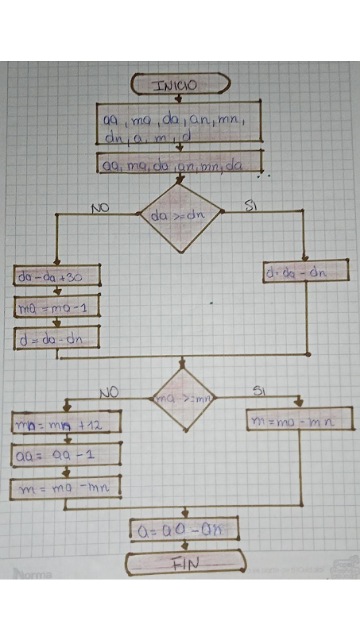 INICIO
aa, ma, da, an, mn,
dn, a, m, d
aa, ma, da, an, mn, da
da >= dn
NO
SI
da-da+30
ma = ma-1
d = da-dn
d=da-dn
ma >=mn
NO
SI
ma = ma +12
aa = aa -1
m = ma-mn
m = ma-mn
a = aa-an
FIN
Norma